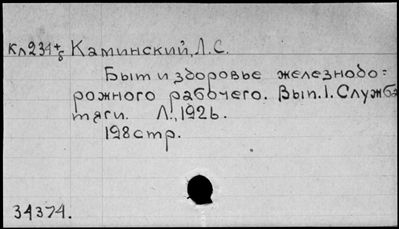 Кл234+б Каминский, Л.С.
Быт и здоровье железнодо=
рожного рабочего. Вып.1. Служба
тяги. Л., 1926.
198стр.
34374.